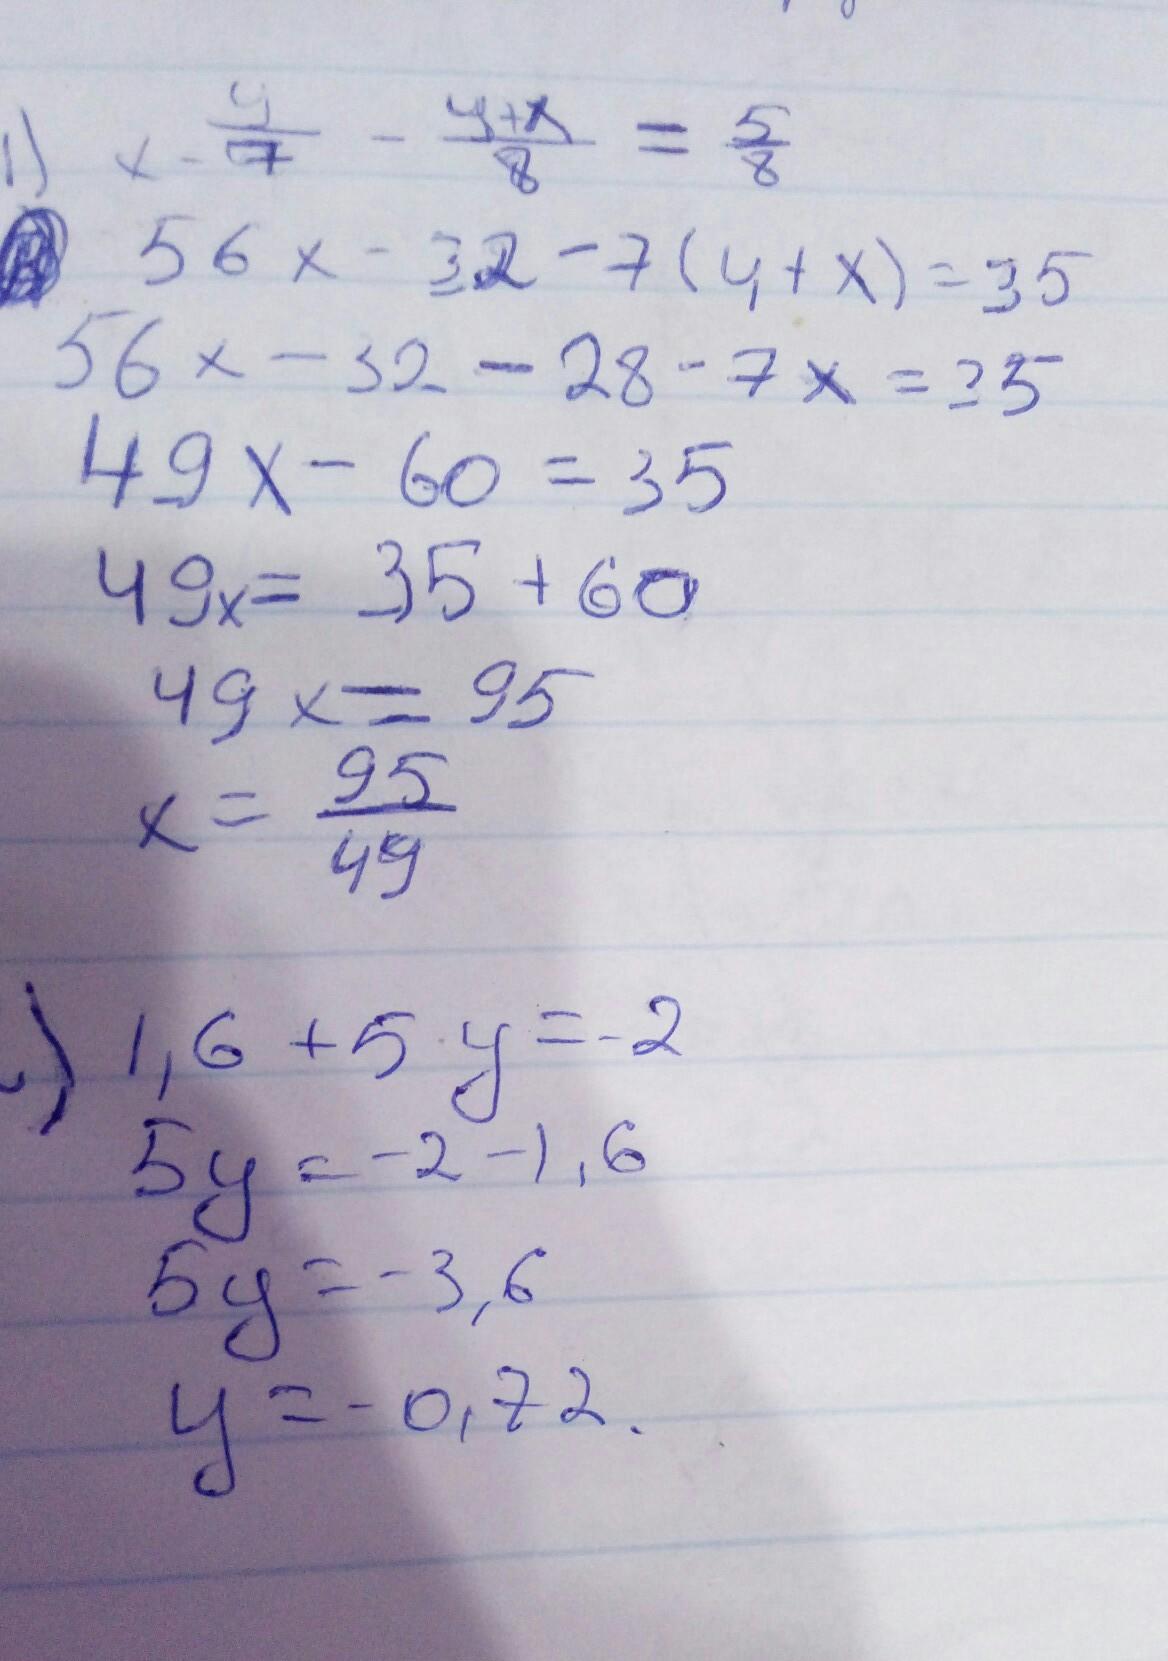 1) x - 4/7 - 4+x/8 = 5/8
56x - 32 - 7(4+x) = 35
56x - 32 - 28 - 7x = 35
49x - 60 = 35
49x = 35 + 60
49x = 95
x = 95/49
) 1,6 + 5·y = -2
5y = -2 - 1,6
5y = -3,6
y = -0,72.